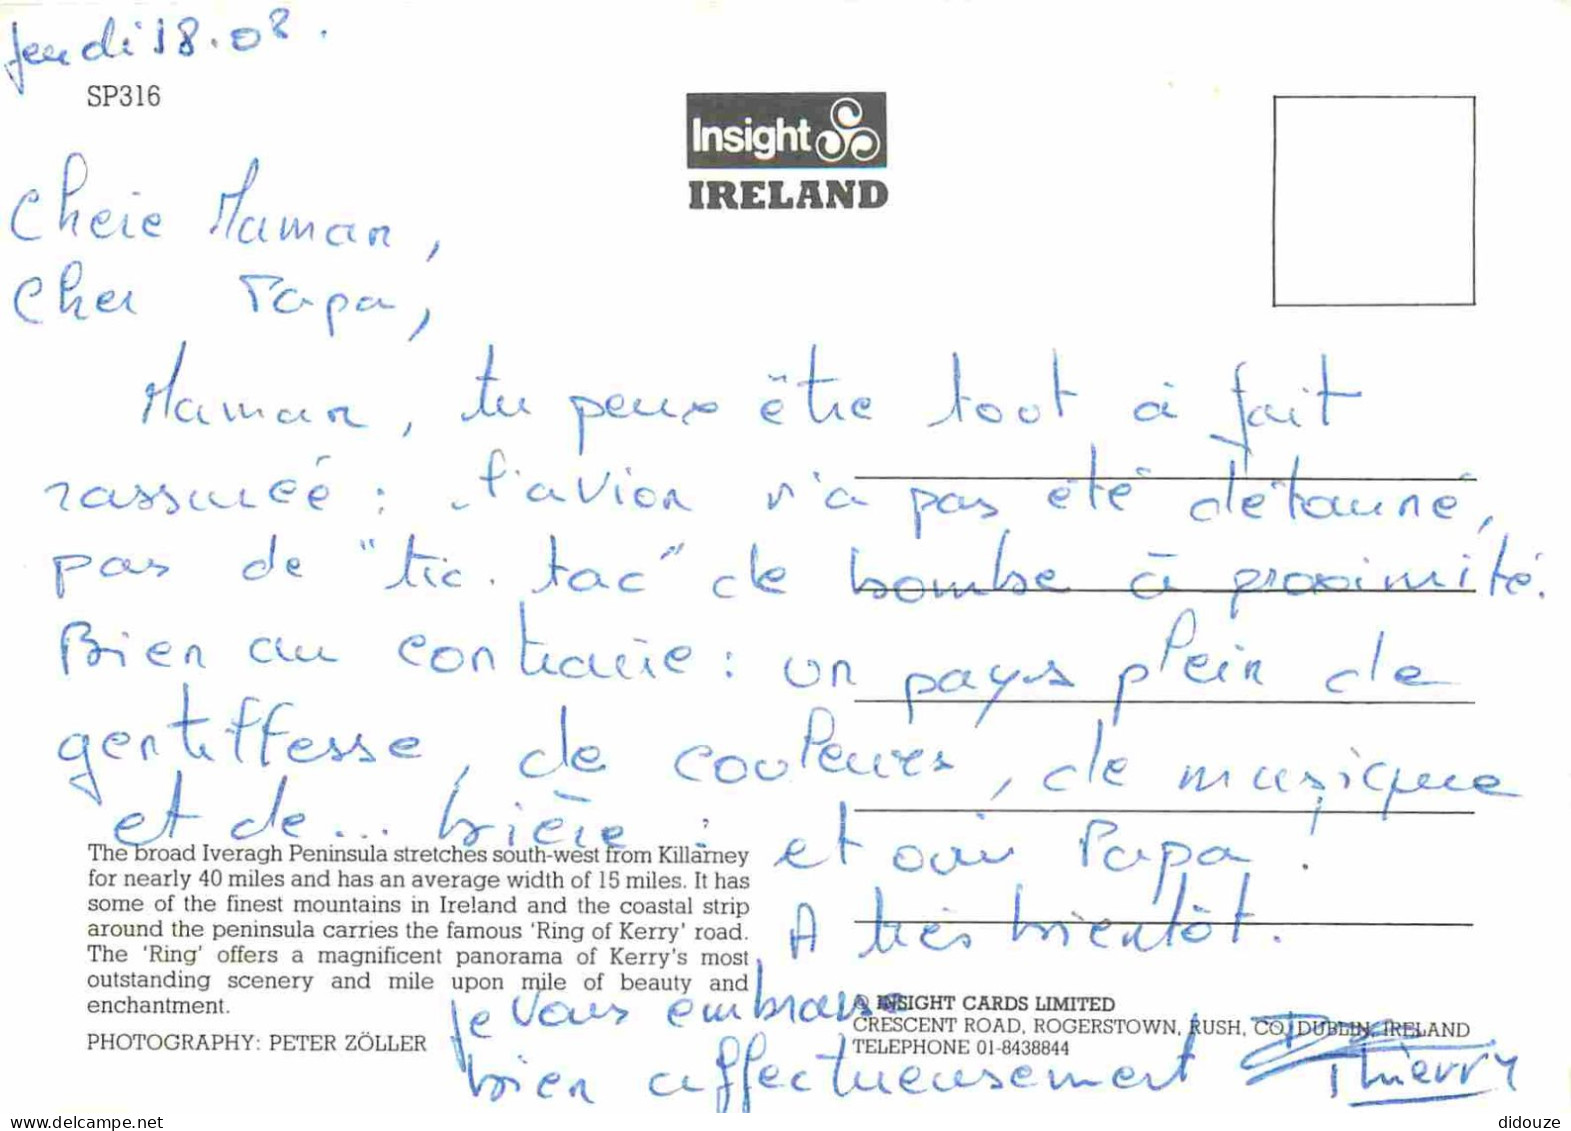 Jeudi 18.08.
SP316
Insight
IRELAND
Chère Maman,
Cher Papa,
Maman, tu peux être tout à fait
rassurée : l'avion n'a pas été détourné,
pas de "tic.tac" de bombe à proximité.
Bien au contraire : un pays plein de
gentillesse, de couleurs, de musique
et de... bière : et oui Papa !
The broad Iveragh Peninsula stretches south-west from Killarney
for nearly 40 miles and has an average width of 15 miles. It has
some of the finest mountains in Ireland and the coastal strip
around the peninsula carries the famous 'Ring of Kerry' road.
The 'Ring' offers a magnificent panorama of Kerry's most
outstanding scenery and mile upon mile of beauty and
enchantment.
PHOTOGRAPHY: PETER ZÖLLER
A très bientôt.
Je vous embrasse
bien affectueusement
Thierry
© INSIGHT CARDS LIMITED
CRESCENT ROAD, ROGERSTOWN, RUSH, CO. DUBLIN, IRELAND
TELEPHONE 01-8438844
didouze